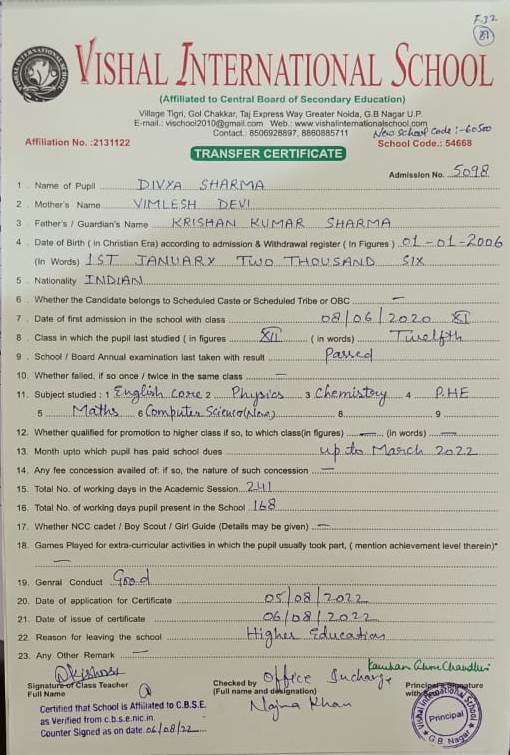 F-32
89
VISHAL INTERNATIONAL SCHOOL
(Affiliated to Central Board of Secondary Education)
Village Tigri, Gol Chakkar, Taj Express Way Greater Noida, G.B Nagar U.P.
E-mail.: vischool2010@gmail.com Web.: www.vishalinternationalschool.com
Contact.: 8506928897, 8860885711 New School Code :- 60500
Affiliation No. :2131122 School Code.: 54668
TRANSFER CERTIFICATE
Admission No. 5098
1 . Name of Pupil DIVYA SHARMA
2 . Mother's Name VIMLESH DEVI
3 . Father's / Guardian's Name KRISHAN KUMAR SHARMA
4 . Date of Birth ( in Christian Era) according to admission & Withdrawal register ( In Figures ) 01-01-2006
(In Words) 1ST JANUARY TWO THOUSAND SIX
5 . Nationality INDIAN
6 . Whether the Candidate belongs to Scheduled Caste or Scheduled Tribe or OBC —
7 . Date of first admission in the school with class 08/06/2020 XI
8 . Class in which the pupil last studied ( in figures XII ( in words) Twelfth
9 . School / Board Annual examination last taken with result Passed
10. Whether failed, if so once / twice in the same class —
11. Subject studied : 1 English Core 2 Physics 3 Chemistry 4 P.HE
5 Maths 6 Computer Science(New) 8 9
12. Whether qualified for promotion to higher class if so, to which class(in figures) — (in words) —
13. Month upto which pupil has paid school dues up to March 2022
14. Any fee concession availed of: if so, the nature of such concession —
15. Total No. of working days in the Academic Session 241
16. Total No. of working days pupil present in the School 168
17. Whether NCC cadet / Boy Scout / Girl Guide (Details may be given) —
18. Games Played for extra-curricular activities in which the pupil usually took part, ( mention achievement level therein)*
—
19. Genral Conduct Good
20. Date of application for Certificate 05/08/2022
21. Date of issue of certificate 06/08/2022
22. Reason for leaving the school Higher Education
23. Any Other Remark —
Signature of Class Teacher Checked by Office Incharge Principal's Signature
Full Name (Full name and designation) with
Najma Khan
Certified that School is Affiliated to C.B.S.E.
as Verified from c.b.s.e.nic.in
Counter Signed as on date 06/08/22
Vishal International School
Principal
G.B. Nagar